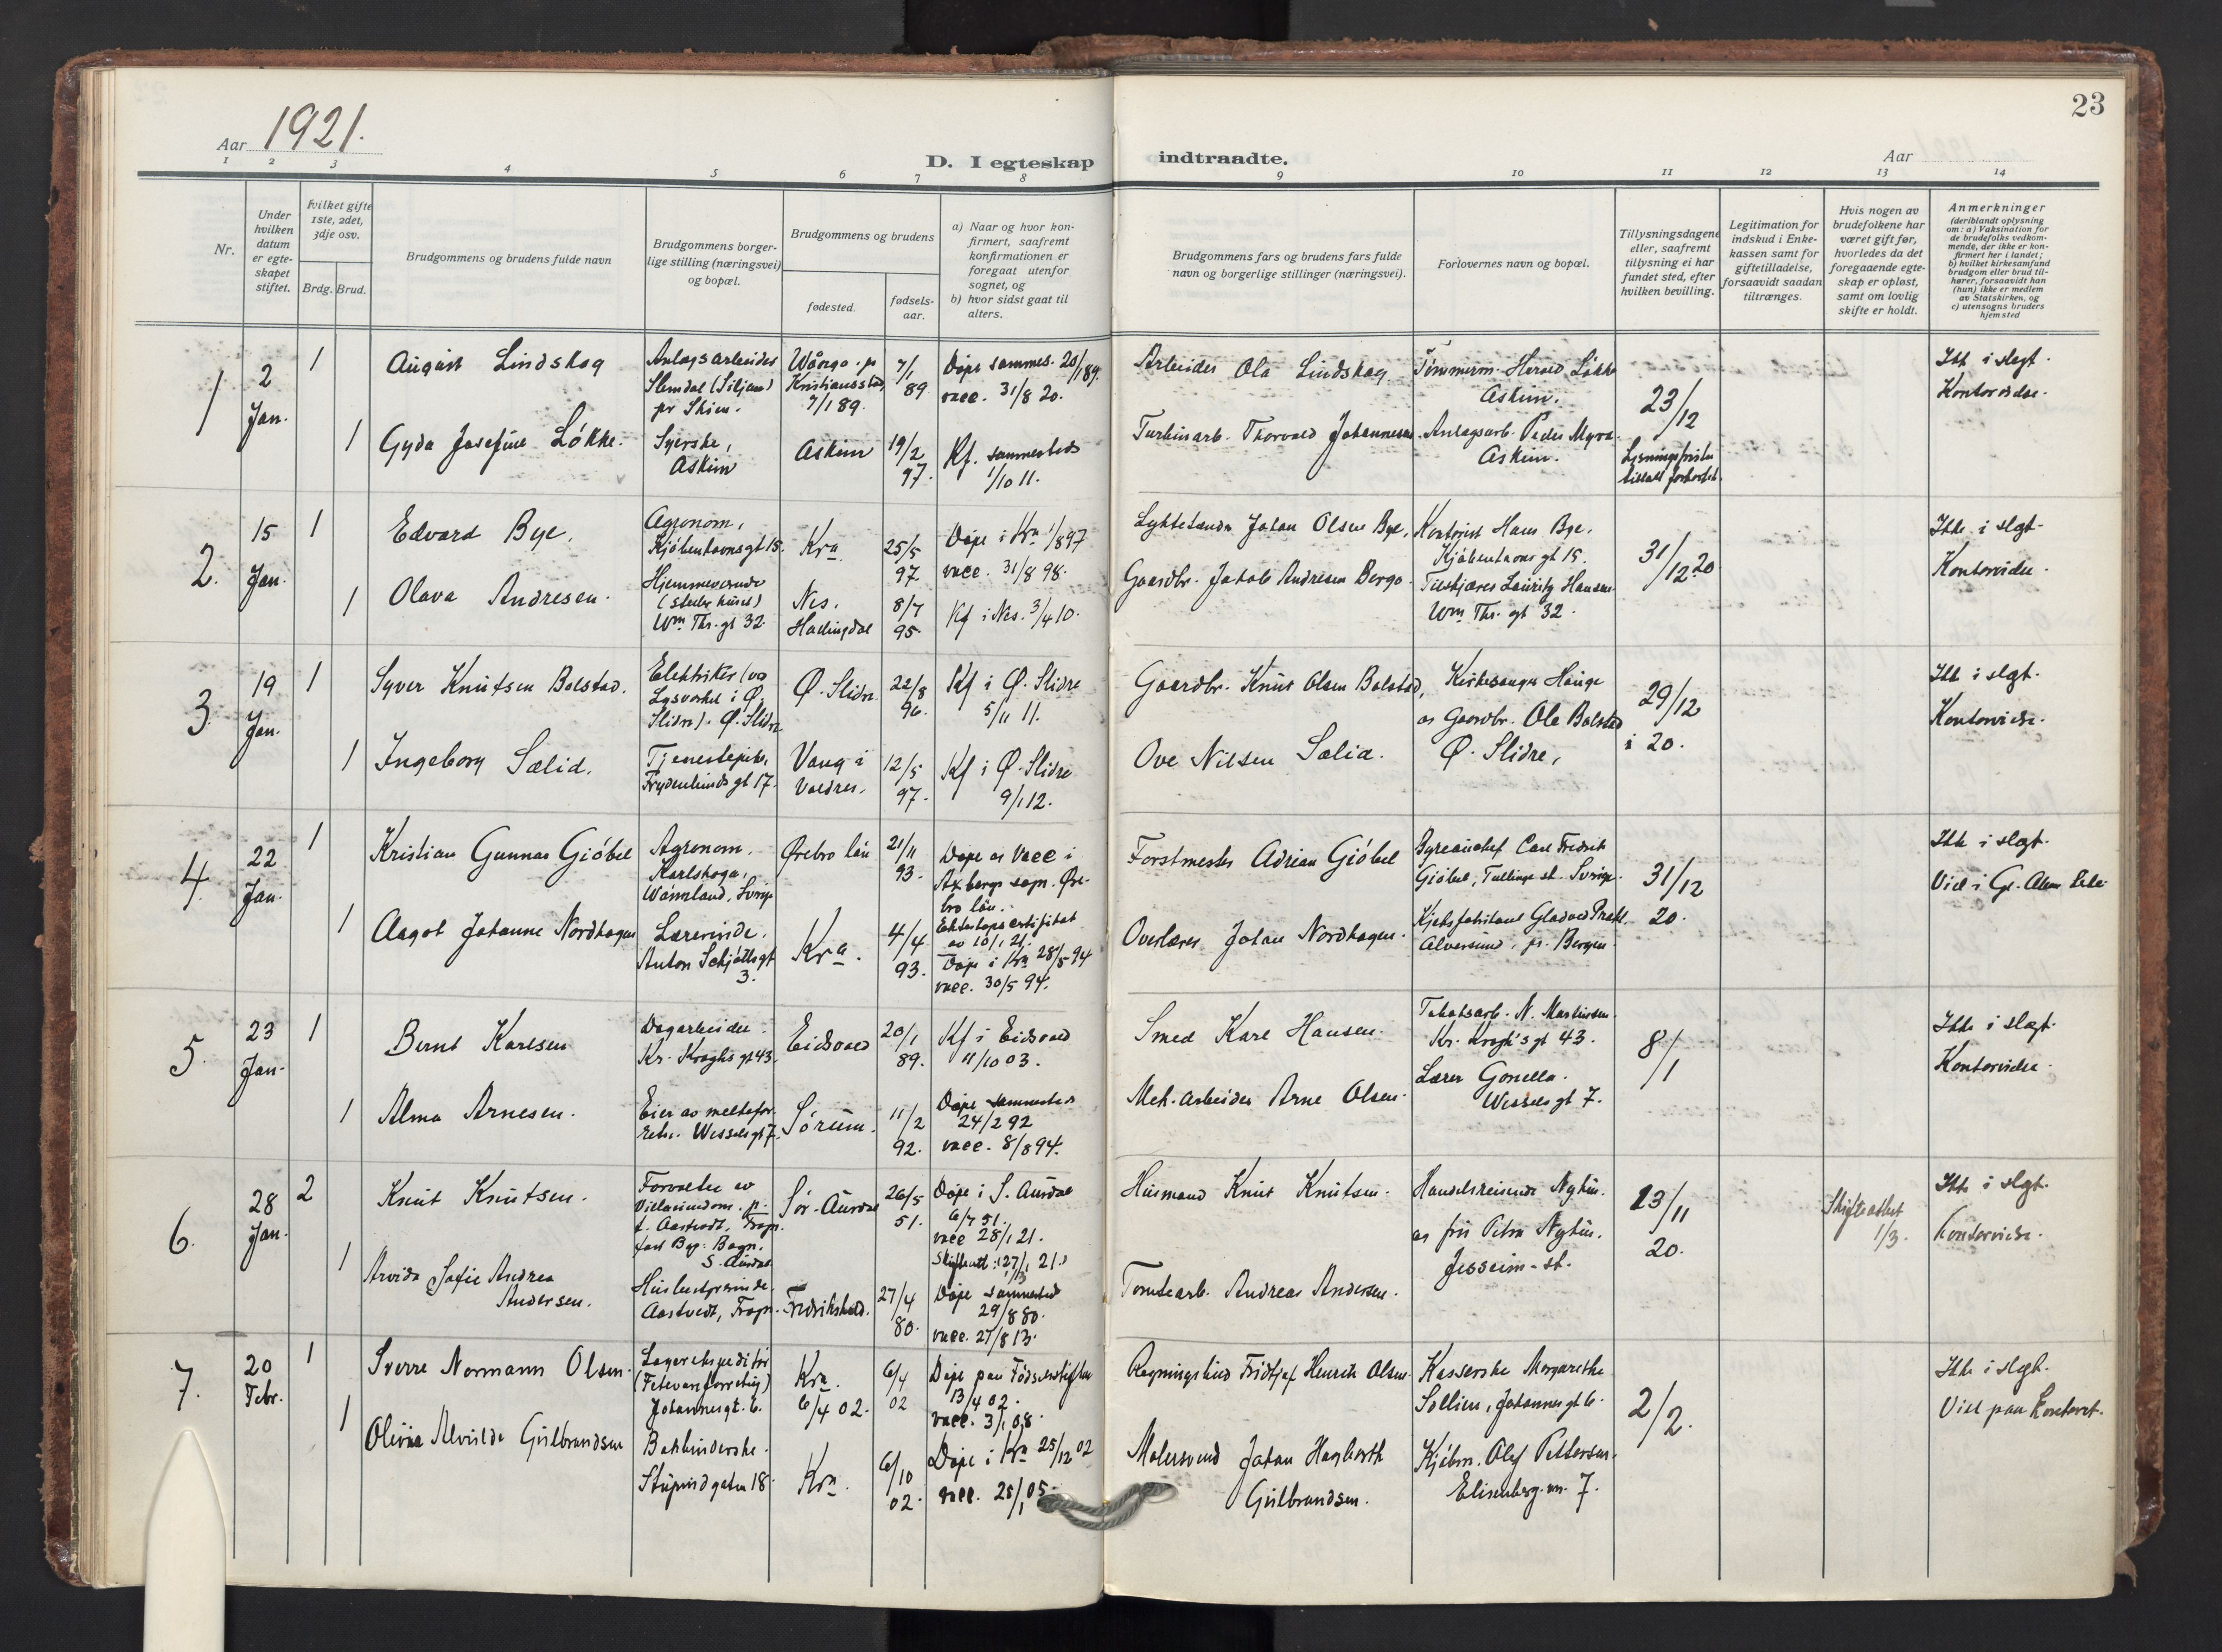 23
Aar 1921.
D. I egteskap indtraadte.
Aar
1 2 3 4 5 6 7 8 9 10 11 12 13 14
Nr.
Under hvilken datum er egteskapet stiftet.
hvilket gifte 1ste, 2det, 3dje osv.
Brdg. Brud.
Brudgommens og brudens fulde navn
Brudgommens borgerlige stilling (næringsvei) og bopæl.
Brudgommens og brudens
fødested.
fødselsaar.
a) Naar og hvor konfirmert, saafremt konfirmationen er foregaat utenfor sognet, og
b) hvor sidst gaat til alters.
Brudgommens fars og brudens fars fulde navn og borgerlige stillinger (næringsvei).
Forlovernes navn og bopæl.
Tillysningsdagene eller, saafremt tillysning ei har fundet sted, efter hvilken bevilling.
Legitimation for indskud i Enkekassen samt for giftetilladelse, forsaavidt saadan tiltrænges.
Hvis nogen av brudefolkene har været gift før, hvorledes da det foregaaende egteskap er opløst, samt om lovlig skifte er holdt.
Anmerkninger
(deriblandt oplysning om: a) Vaksination for de brudefolks vedkommende, der ikke er konfirmert her i landet;
b) hvilket kirkesamfund brudgom eller brud tilhører, forsaavidt han (hun) ikke er medlem av Statskirken, og
c) utensogns bruders hjemsted
1
2 Jan.
1
August Lindskog
Anlægsarbeider
Slemdal (Siljan)
pr Skien.
Wånga pr
Kristiansstad
7/1 89.
7/1 89
Døpt sammes. 20/1 89.
vacc. 31/8 20.
Arbeider Ola Lindskog
Tømmerm. Herold Løkke
Askim.
23/12
Ikke i slegt.
Kontorvidse.
1
Gyda Josefine Løkke.
Syerske,
Askim
Askim
19/2 97.
Kf. sammesteds
1/10 11.
Turbinarb. Thorvald Johannesen.
Anlægsarb. Peder Myra
Askim.
Lysningsfristen
2.
15 Jan.
1
Edvard Bye.
Agronom,
Kjøbenhavnsgt 15.
Kra
25/5 97
Døpt i Kra 1/8 97
vacc. 31/8 98.
Lyktetænder Johan Olsen Bye.
Kontorist Hans Bye.
Kjøbenhavnsgt 15.
31/12 20
Ikke i slegt.
Kontorvidse.
1
Olava Andresen.
Hjemmeværende
Wm Thr. gt 32.
Nes.
Hallingdal
8/7 95.
Kf i Nes. 3/4 10.
Gaardbr. Jakob Andresen Berga.
Tilskjærer Lauritz Hansen
Wm Thr. gt 32.
3.
19 Jan.
1
Syver Knutsen Bolstad.
Elektriker (ved
Lysverket i Ø.
Slidre). Ø. Slidre
Ø. Slidre
22/8 96.
Kf i Ø. Slidre
5/11 11.
Gaardbr. Knut Olsen Bolstad,
Kirkesanger Hauge
og Gaardbr. Ole Bolstad
Ø. Slidre,
29/12
20.
Ikke i slegt.
Kontorvidse.
1
Ingeborg Sælid.
Tjenestepike,
Frydenlundsgt 17.
Vang i
Valdres.
12/5 97.
Kf i Ø. Slidre
9/1 12.
Ove Nilsen Sælid.
4.
22 Jan.
1
Kristian Gunnar Giöbel
Agronom.
Karlskoga,
Wärmland, Sverige
Ørebro län
21/11 93.
Døpt og vacc i
Axbergs sogn. Ørebro län.
Ekteskapscertifikat
av 10/1 21.
Forstmester Adrian Giöbel
Byreauchef Carl Fredrik
Giöbel, Tullinge st. Sverige.
31/12
20.
Ikke i slegt.
Viel i Gl. Aker
1
Aagot Johanne Nordhagen
Lærerinde.
Anton Schjøttsgt
3.
Kra.
4/4 93.
Døpt i Kra 28/5 94
vacc. 30/5 94.
Overlærer Johan Nordhagen.
Alversund, pr. Bergen.
5.
23 Jan.
1
Bernt Karlsen
Dagarbeider.
Kr. Kroghs gt 43.
Eidsvold
20/1 89.
Kf i Eidsvold
11/10 03.
Smed Karl Hansen.
Tobaksarb. N. Martinsen.
Kr. Krogh's gt 43.
8/1
Ikke i slegt.
Kontorvidse.
1
Alma Arnesen.
Eier av melkeforretn. Wesselsgt 7.
Sørum.
11/2 92.
Døpt sammesteds
24/2 92
vacc. 8/8 94.
Mek. arbeider Arne Olsen.
Lærer Gonella.
Wesselsgt 7.
6.
28 Jan.
2
Knut Knutsen.
Forvalter av
Villaeiendom. p.
t. Aastvedt, Frogn.
fast Bop: Bagn.
S. Aurdal
Sør-Aurdal
26/5 51.
Døpt i S. Aurdal
6/7 51.
vacc 28/1 21.
Skifteatt: 27/1 21.
Husmand Knut Knutsen.
Handelsreisende Nyhus.
og fru Petra Nyhus.
Jessheim-st.
13/11
20.
Skifteattest
1/3.
Ikke i slegt.
Kontorvidse.
1
Arvida Sofie Andrea
Andersen.
Husbestyrerinde.
Aastvedt, Frogn.
Fredrikshald.
27/4 80.
Døpt sammested
29/8 80.
vacc. 27/8 13.
Tomtearb. Andreas Andersen.
7.
20 Febr.
1
Sverre Normann Olsen.
Lagerekspeditør
(Fetevareforretning)
Johannesgt. 6.
Kra.
6/4 02.
6/4 02
Døpt paa Fødselsstiftelsen
13/4 02.
vacc. 3/1 08.
Regningsbud Fridtjof Henrik Olsen.
Kasserske Margarethe
Sollien, Johannesgt 6.
2/2.
Ikke i slegt.
Viel paa Kontoret.
1
Olivia Alvilde Gulbrandsen
Bokbinderske.
Stupindgaten 18.
Kra.
6/10 02.
Døpt i Kra 25/12 02
vacc. 25/1 05.
Malersvend Johan Hagbarth
Gulbrandsen.
Kjøbm. Olef Pettersen.
Elisenberg.vn. 7.